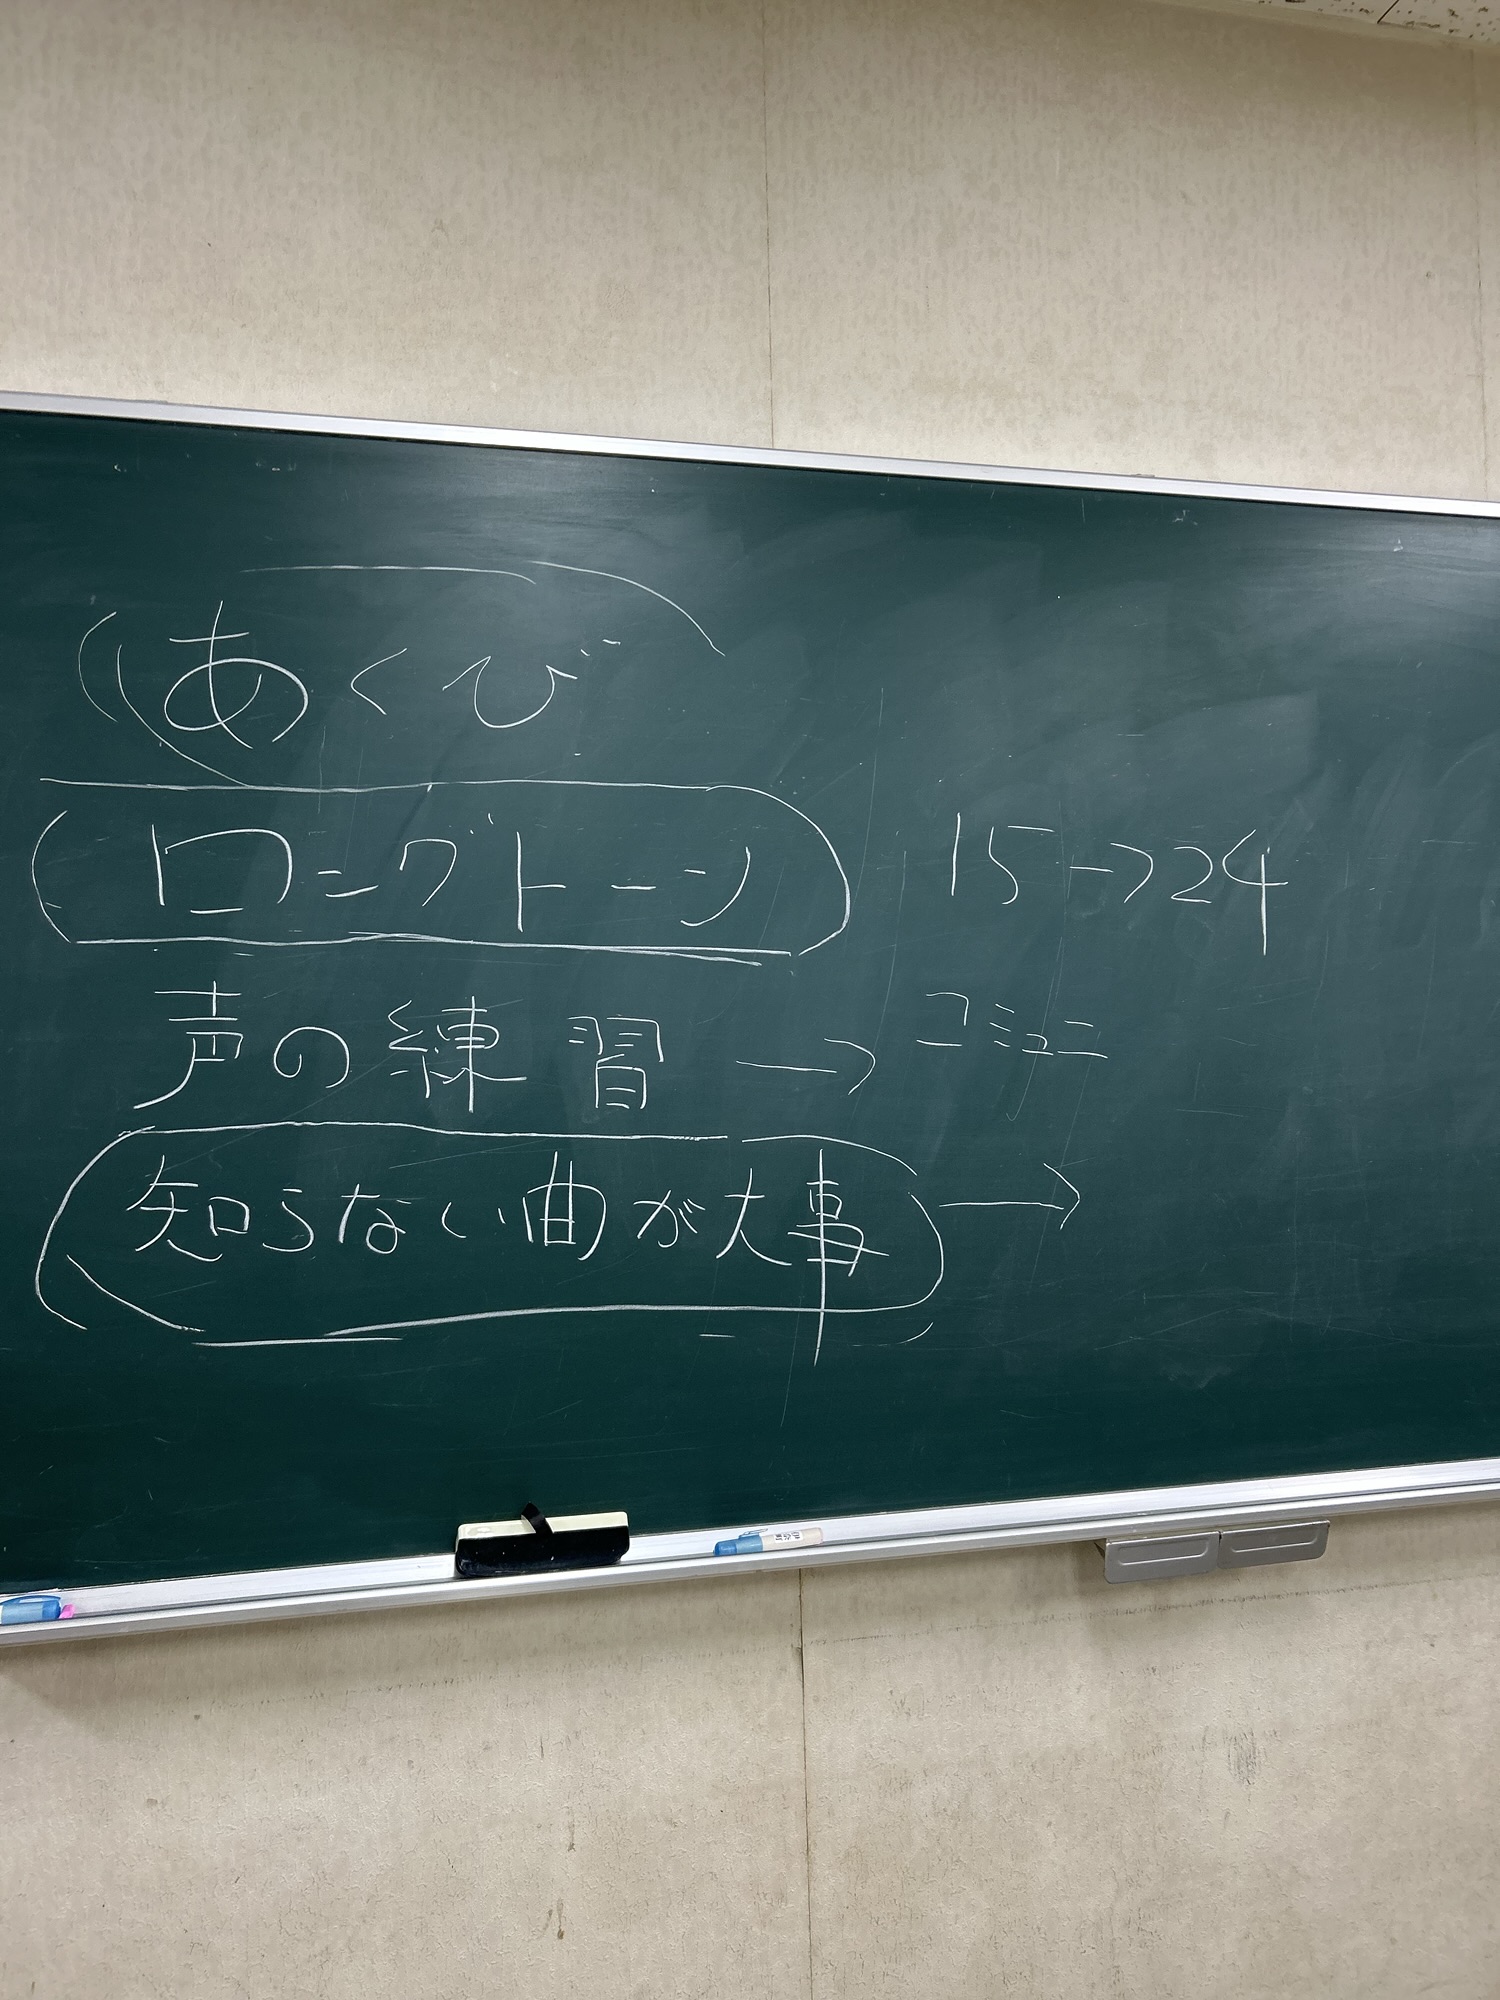 あくび
ロングトーン 15→24
声の練習 → コミュニ
知らない曲が大事 →